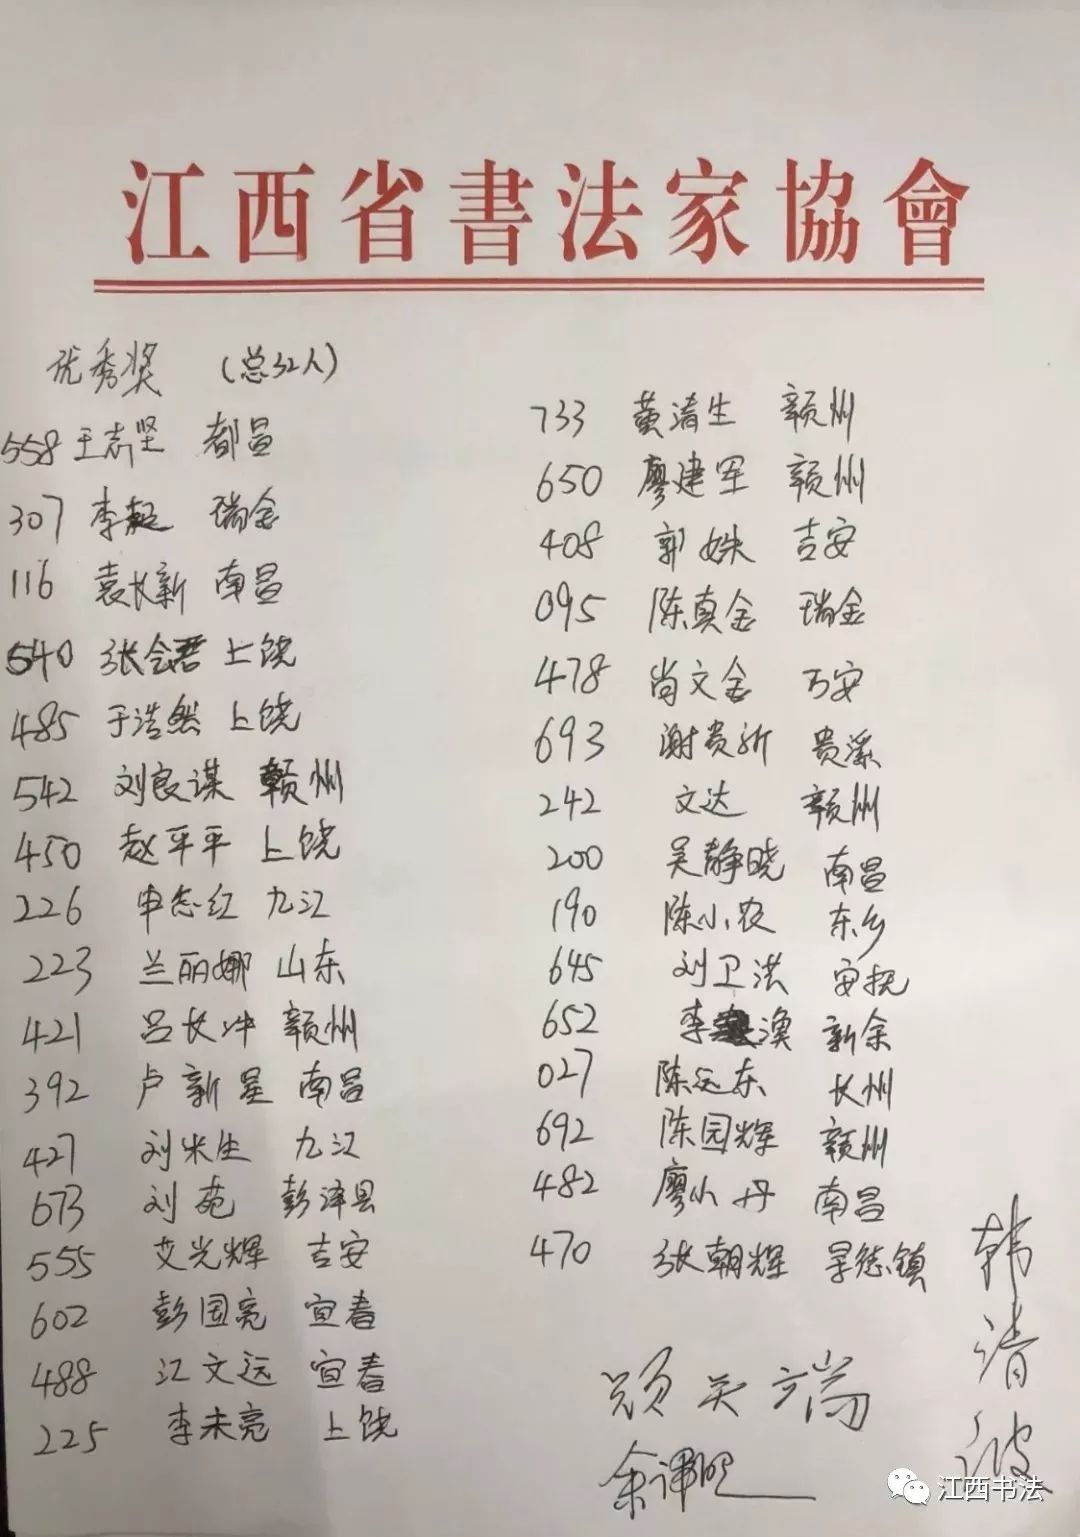 江西省書法家協會
优秀奖 (总32人)
558 王志坚 都昌
307 李超 瑞金
116 袁长新 南昌
540 张会君 上饶
485 于浩然 上饶
542 刘良谋 赣州
450 赵平平 上饶
226 申志红 九江
223 兰丽娜 山东
421 吕长冲 赣州
392 卢新星 南昌
427 刘米生 九江
673 刘苑 彭泽县
555 艾光辉 吉安
602 彭国亮 宜春
488 江文远 宜春
225 李未亮 上饶
733 黄清生 赣州
650 廖建军 赣州
408 郭姝 吉安
095 陈真金 瑞金
478 尚文金 万安
693 谢贵新 贵溪
242 文达 赣州
200 吴静晓 南昌
190 陈小农 东乡
645 刘卫洪 安抚
652 李 漠 新余
027 陈远东 长州
692 陈园辉 赣州
482 廖小丹 南昌
470 张朝辉 景德镇
韩清波
端
余
江西书法